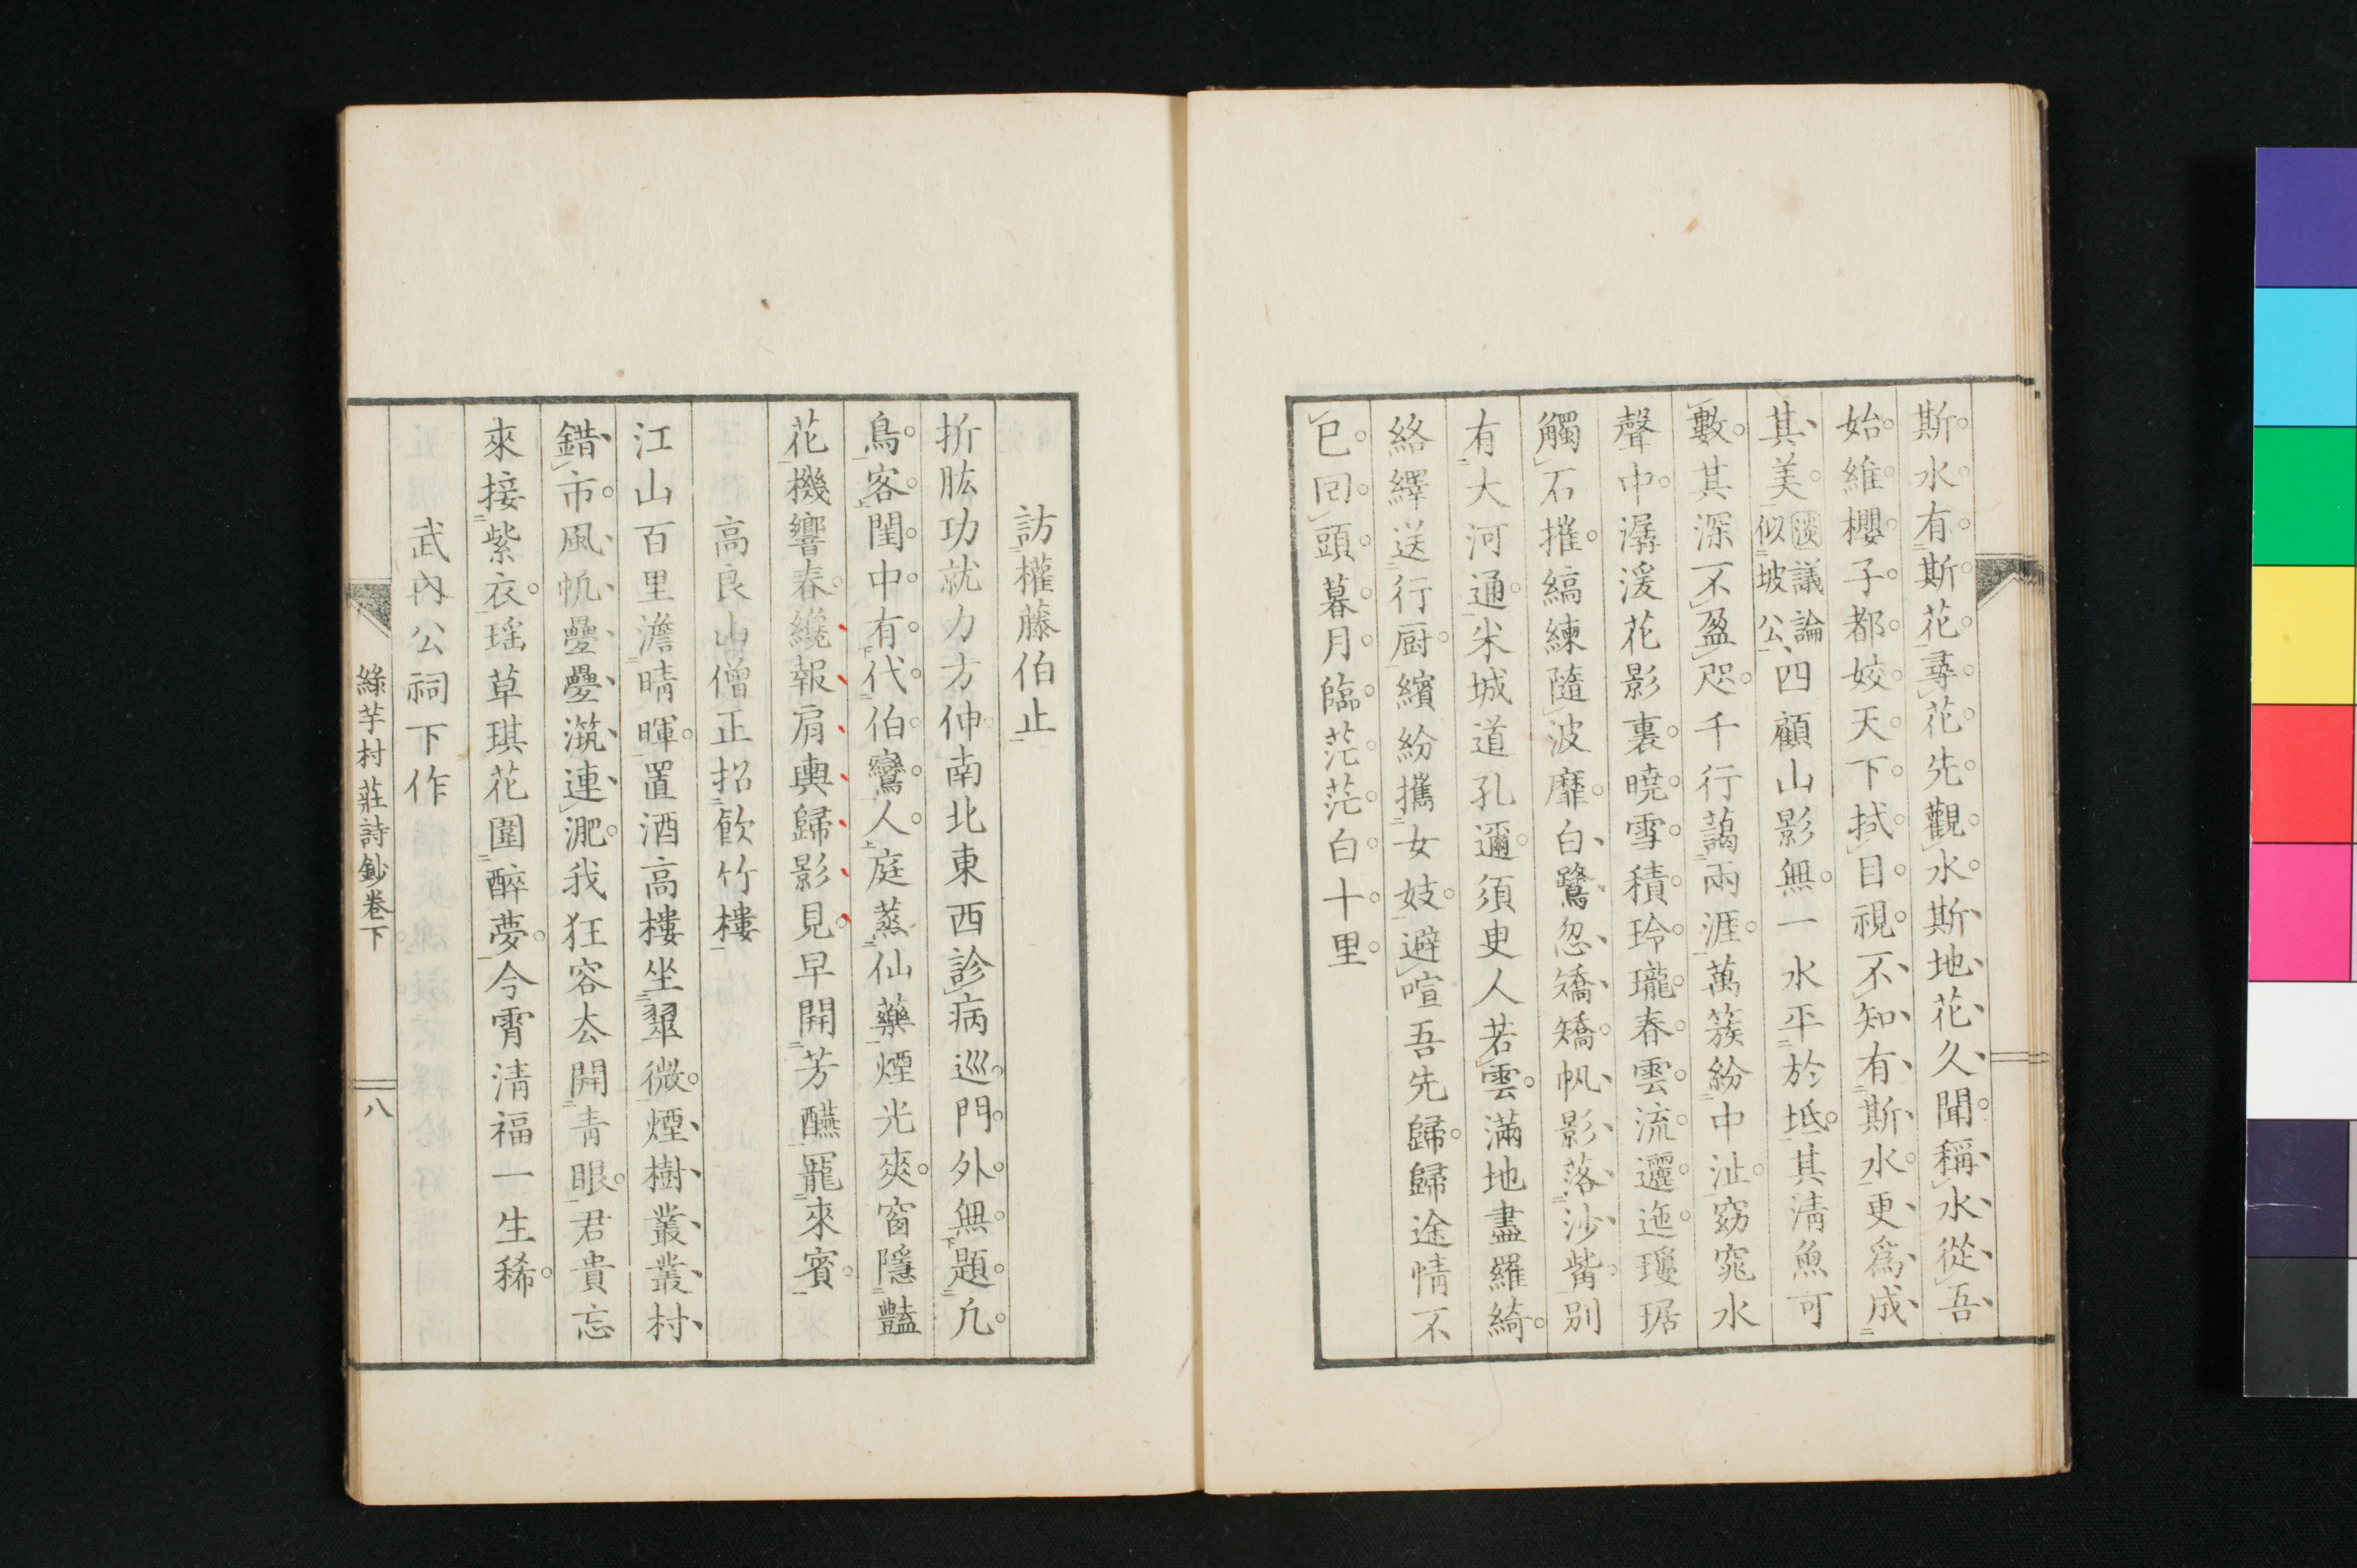 斯水有斯花尋花先觀水斯地花久聞稱水從吾
始維櫻子都姣天下拭目視不知有斯水更爲成
其美淡議論似坡公四顧山影無一水平於坻其淸魚可
數其深不盈咫千行藹兩涯萬簇紛中沚窈窕水
聲中潺湲花影裏曉雪積玲瓏春雲流邐迤瓊琚
觸石摧縞練隨波靡白鷺忽矯矯帆影落沙觜別
有大河通米城道孔邇須臾人若雲滿地盡羅綺
絡繹送行厨繽紛攜女妓避喧吾先歸歸途情不
已回頭暮月臨茫茫白十里
訪權藤伯止
折肱功就力方伸南北東西診病巡門外無題凢
鳥客閨中有代伯鸞人庭蒸仙藥煙光爽窗隱豔
花機響春纔報肩輿歸影見早開芳醼寵來賓
高良山僧正招飮竹樓
江山百里澹晴暉置酒高樓坐翠微煙樹叢叢村
錯市風帆疊疊瀿連淝我狂容厺開靑眼君貴忘
來接紫衣瑶草琪花圍醉夢今霄淸福一生稀
武內公祠下作
綠芋村莊詩鈔卷下
八